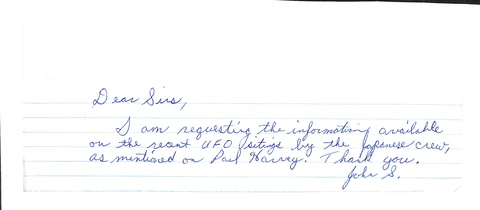 Dear Sirs,
I am requesting the information available
on the recent UFO sitings by the Japanese crew,
as mentioned on Paul Harvey. Thank you.
John S.